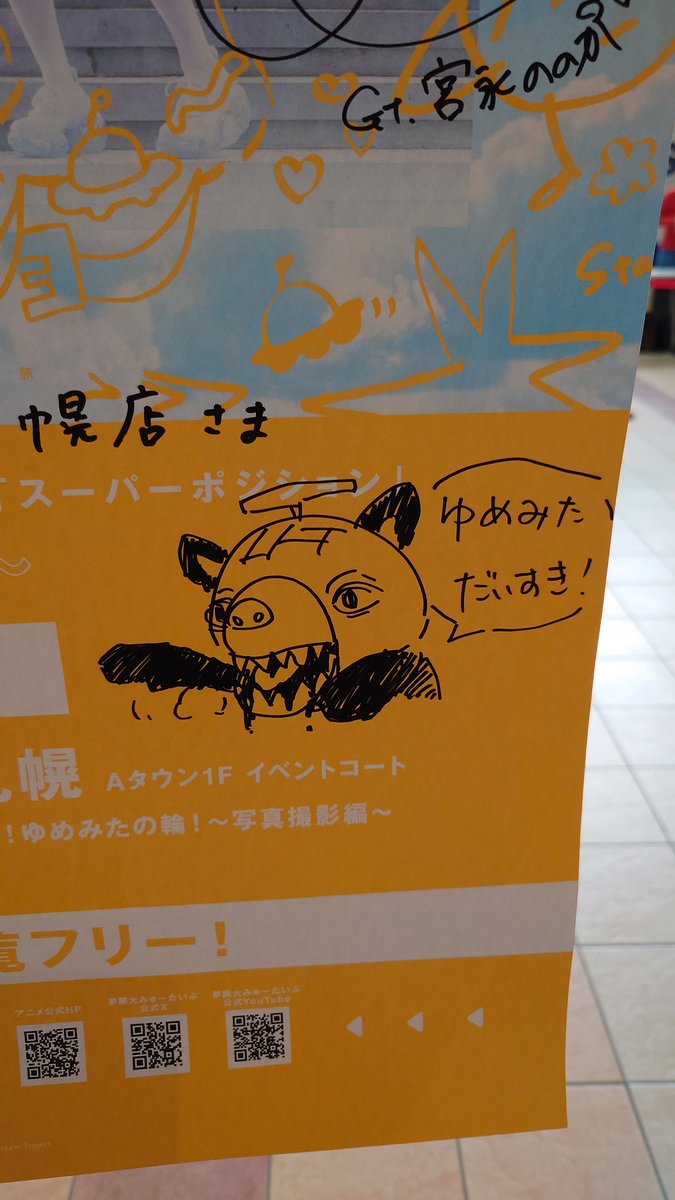 Gt. 宮永ののか
Sta
旅
幌店 さま
「スーパーポジション」
ゆめみた
だいすき!
幌 Aタウン1F イベントコート
!ゆめみたの輪!～写真撮影編～
覧フリー!
アニメ公式HP
夢限大みゅーたいぷ
公式X
夢限大みゅーたいぷ
公式YouTube
ream! Project